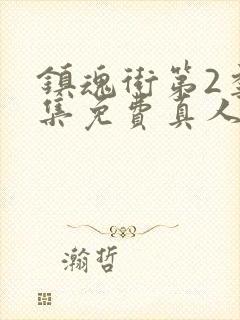 鎮魂街第2
集免費真人
瀚哲